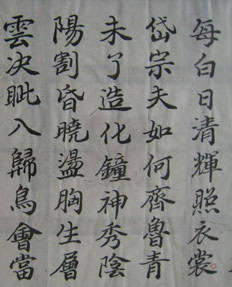 每白日清輝照衣裳
岱宗夫如何齊魯青
未了造化鐘神秀陰
陽割昏曉盪胸生層
雲决眦入歸鳥會當